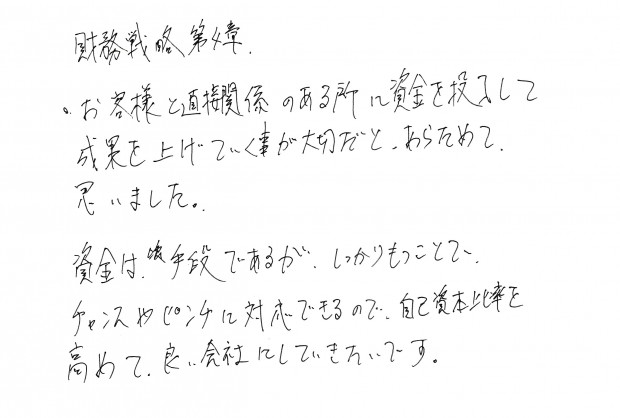 財務戦略 第4章.
。お客様と直接関係のある所に資金を投入して
成果を上げていく事が大切だと、あらためて、
思いました。
資金は、手段であるが、しっかりもつことで、
チャンスやピンチに対応できるので、自己資本比率を
高めて、良い会社にしていきたいです。